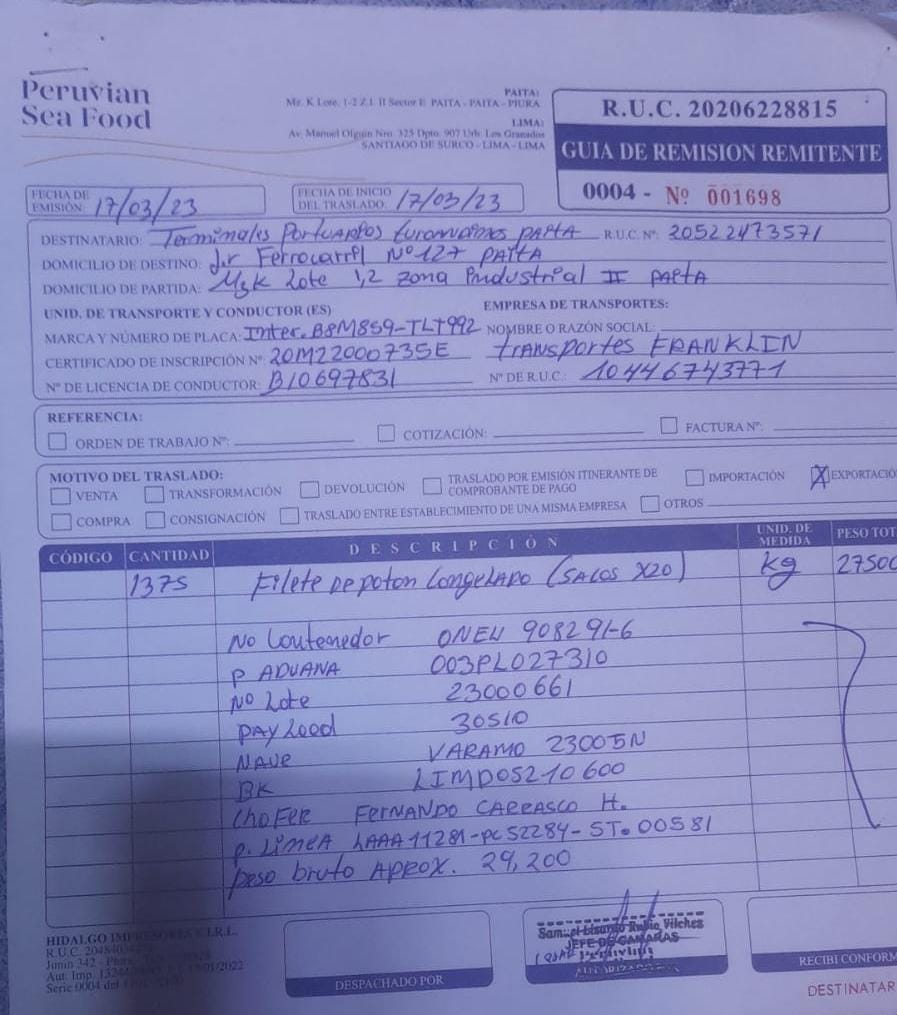 Peruvian
Sea Food
PAITA:
Mz. K Lote. 1-2 Z.I. II Sector E PAITA - PAITA - PIURA
LIMA:
Av. Manuel Olguin Nro. 325 Dpto. 907 Urb. Los Granados
SANTIAGO DE SURCO - LIMA - LIMA
R.U.C. 20206228815
GUIA DE REMISION REMITENTE
0004 - Nº 001698
FECHA DE EMISIÓN: 17/03/23
FECHA DE INICIO DEL TRASLADO: 17/03/23
DESTINATARIO: Terminales Portuarios Euroandinos PAITA R.U.C. Nº: 20522473571
DOMICILIO DE DESTINO: Jr Ferrocarril Nº 127 PAITA
DOMICILIO DE PARTIDA: Mzk Lote 1,2 Zona Industrial II PAITA
UNID. DE TRANSPORTE Y CONDUCTOR (ES)
EMPRESA DE TRANSPORTES:
MARCA Y NÚMERO DE PLACA: Inter. B8M859-TLT992
NOMBRE O RAZÓN SOCIAL:
CERTIFICADO DE INSCRIPCIÓN Nº: 20M22000735E
transportes FRANKLIN
Nº DE LICENCIA DE CONDUCTOR: B10697831
Nº DE R.U.C.: 10446743771
REFERENCIA:
ORDEN DE TRABAJO Nº:
COTIZACIÓN:
FACTURA Nº:
MOTIVO DEL TRASLADO:
VENTA
TRANSFORMACIÓN
DEVOLUCIÓN
TRASLADO POR EMISIÓN ITINERANTE DE COMPROBANTE DE PAGO
IMPORTACIÓN
X EXPORTACIÓ
COMPRA
CONSIGNACIÓN
TRASLADO ENTRE ESTABLECIMIENTO DE UNA MISMA EMPRESA
OTROS
CÓDIGO CANTIDAD DESCRIPCIÓN UNID. DE MEDIDA PESO TOT
1375 Filete De poton Congelado (SACOS X20) kg 27500
No Contenedor ONEU 908291-6
P ADUANA 003PL027310
No Lote 23000661
PAY Lood 30510
NAVE VARAMO 23005N
BK LIMD05210600
Chofer FERNANDO CARRASCO H.
P. LINEA LAAA11281-PC52284-ST.00581
peso bruto APROX. 29,200
HIDALGO IMPRESORES E.I.R.L.
Serie 0004 del
DESPACHADO POR
Samuel Lisando Rubio Vilches
JEFE DE CAMARAS
AUTORIZADO
RECIBI CONFORM
DESTINATAR